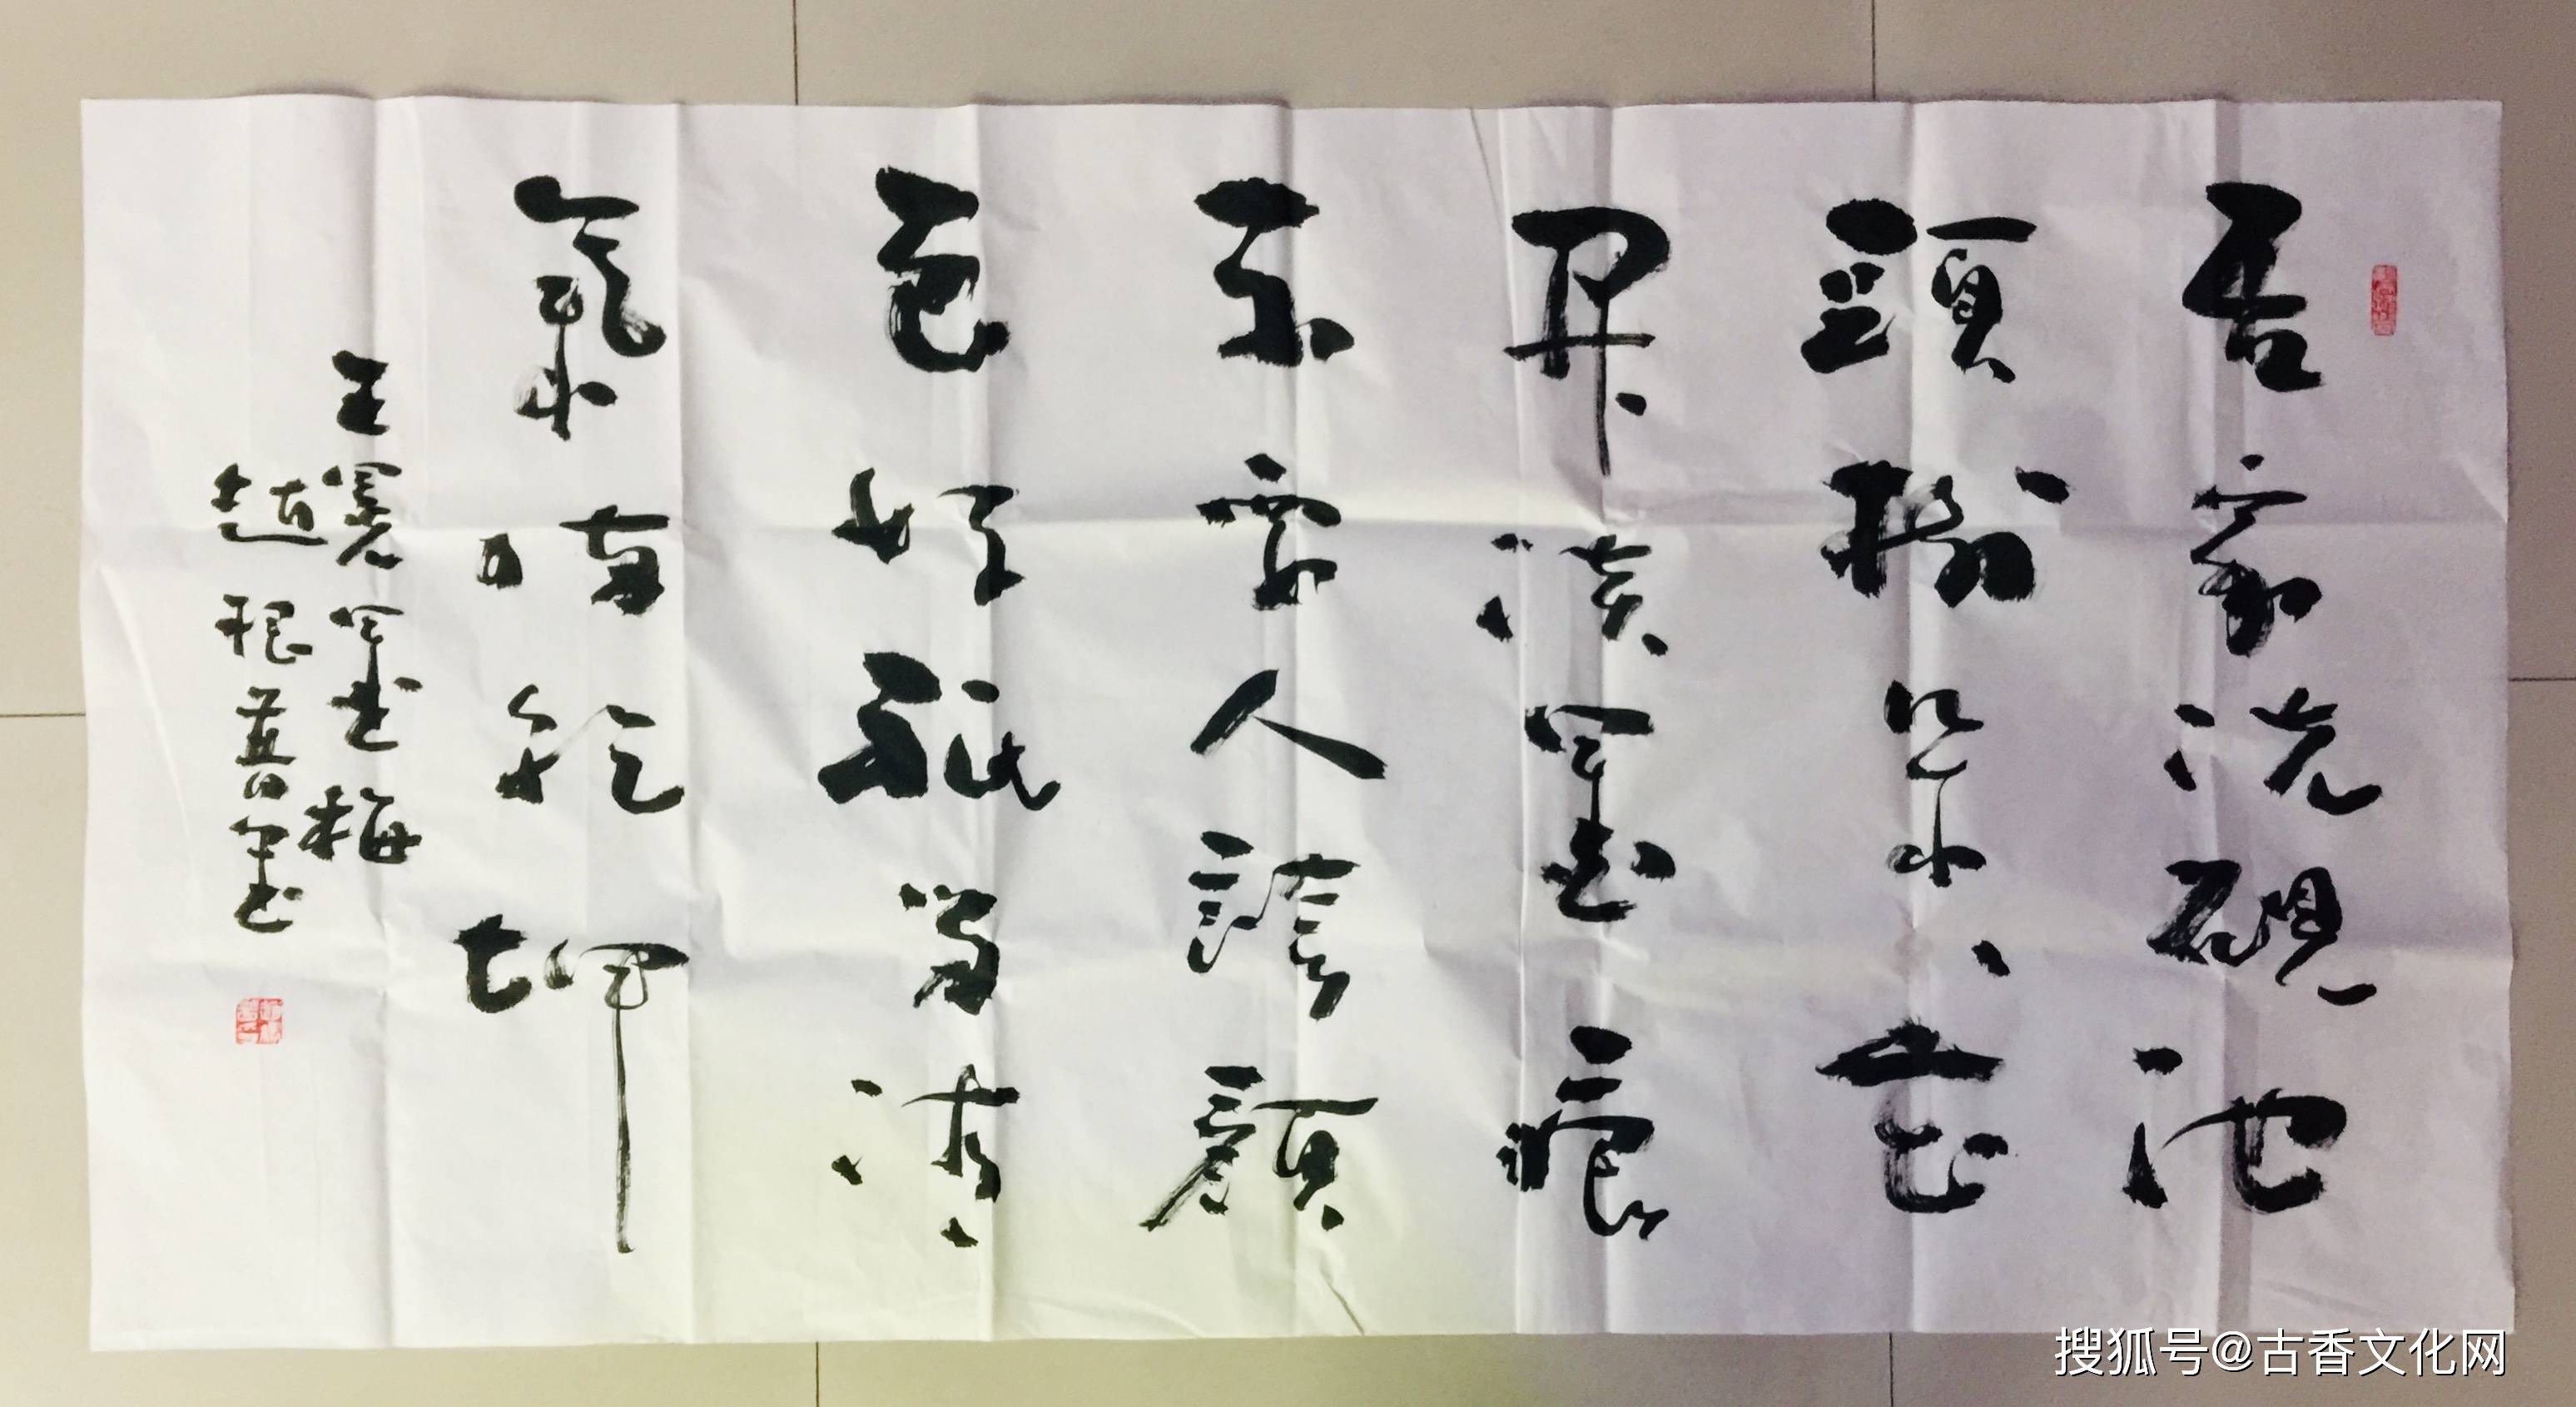 吾家洗硯池
頭樹朵、花
開淡墨痕
不要人誇顏
色好祇留清
氣滿乾坤
王冕墨梅
趙根普書
搜狐号@古香文化网